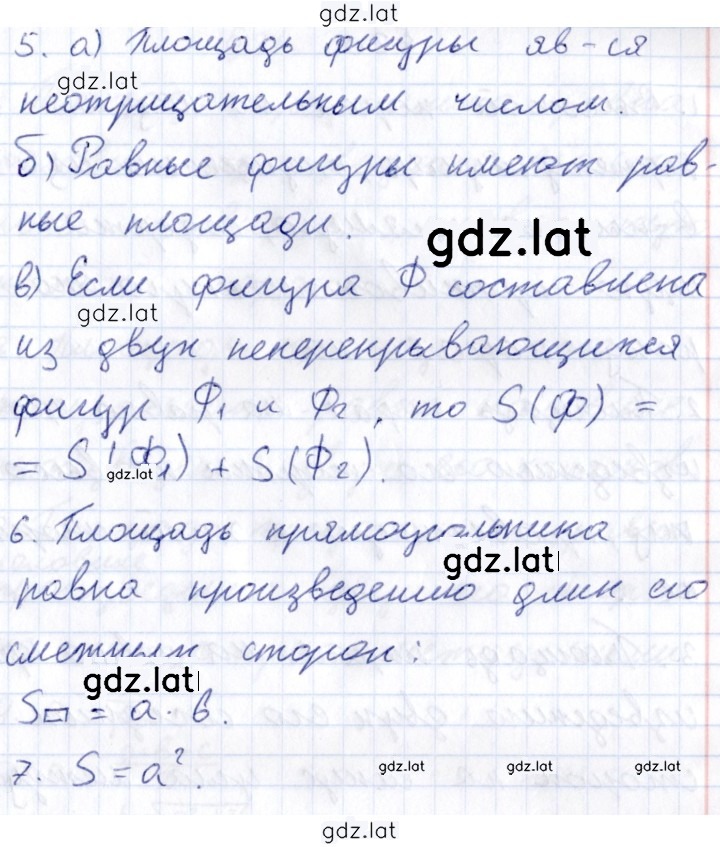 gdz.lat
5. а) Площадь фигуры яв-ся
gdz.lat
неотрицательным числом.
б) Равные фигуры имеют рав-
ные площади.
gdz.lat
в) Если фигура Ф составлена
gdz.lat
из двух неперекрывающихся
фигур Ф₁ и Ф₂, то S(Ф) =
= S(Ф₁) + S(Ф₂).
gdz.lat
6. Площадь прямоугольника
gdz.lat
равна произведению длин его
смежных сторон:
gdz.lat
S▭ = a · b.
7. S = a².
gdz.lat gdz.lat gdz.lat
gdz.lat